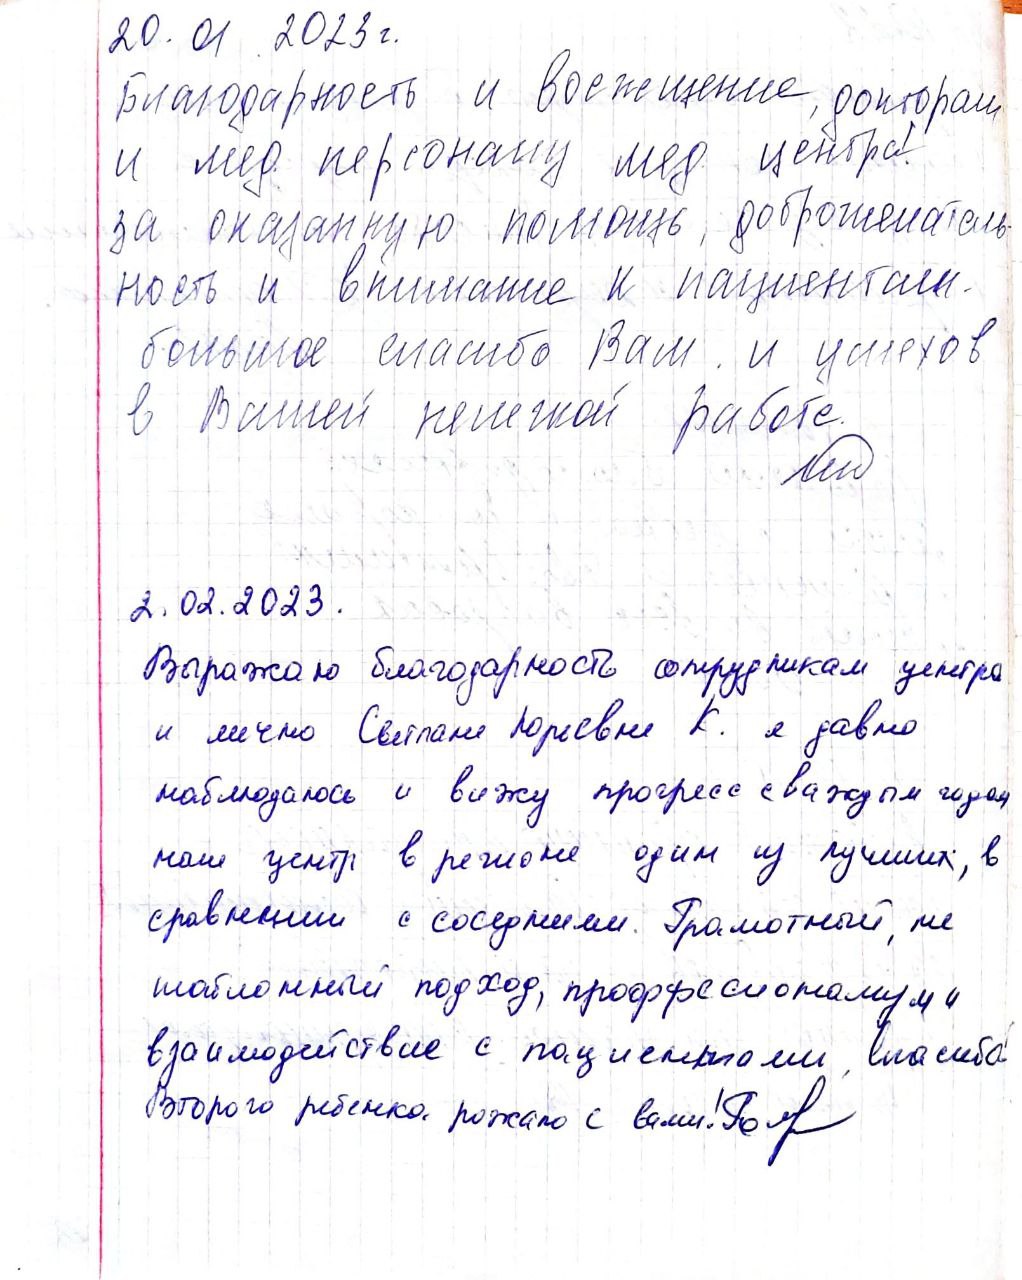 20.01 2023 г.
Благодарность и восхещение, докторам
и мед. персоналу мед. центра!
за оказанную помощь, доброжелатель-
ность и внимание к пациентам.
большое спасибо Вам и успехов
в Вашей нелегкой работе.
2.02.2023.
Выражаю благодарность сотрудникам центра
и лично Светлане Юрьевне К. я давно
наблюдаюсь и вижу прогресс с каждым годом
наш центр в регионе один из лучших, в
сравнении с соседними. Грамотный, не
шаблонный подход, профессионализм и
взаимодействие с пациентами, спасибо!
Второго ребенка рожаю с вами!